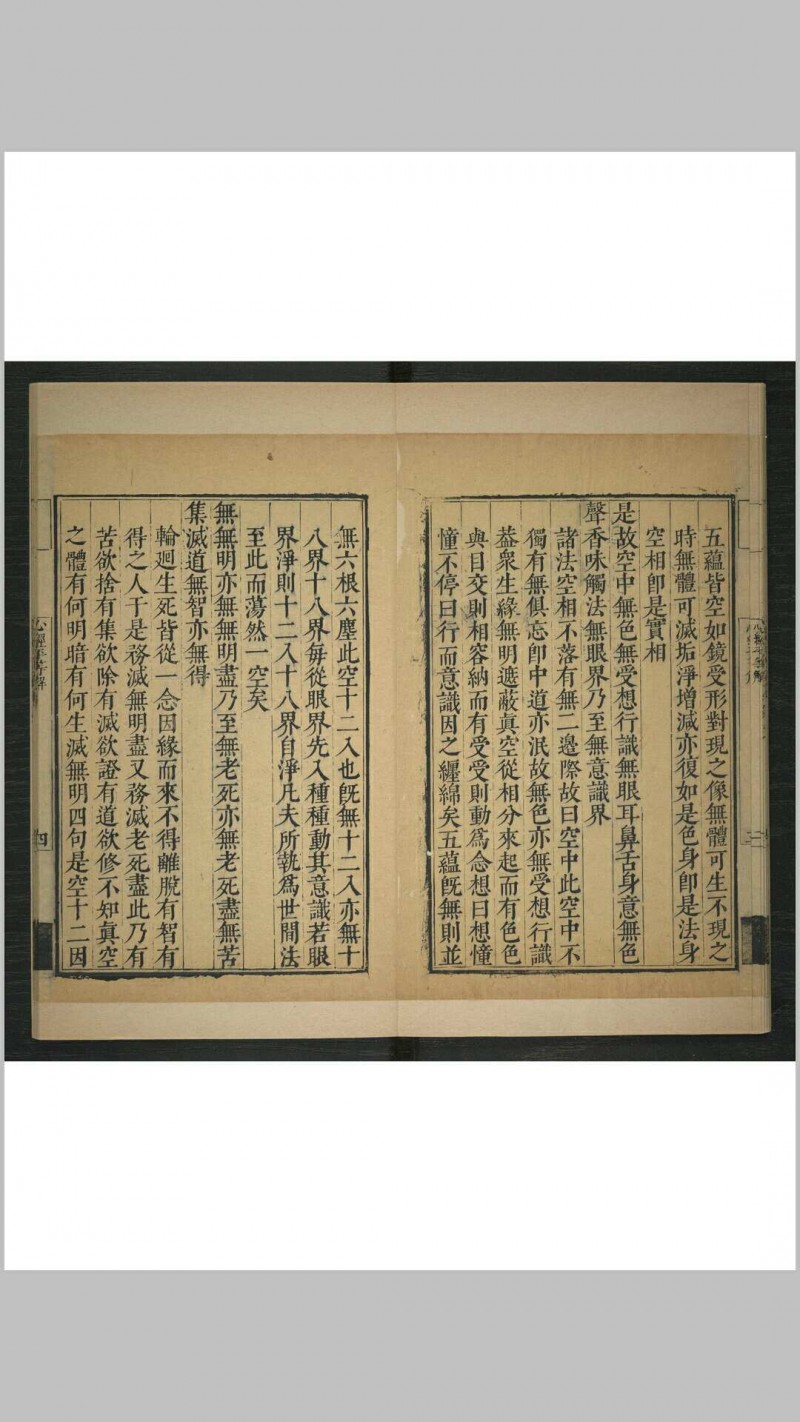 五蘊皆空如鏡受形對現之像無體可生不現之
時無體可滅垢淨增減亦復如是色身卽是法身
空相卽是實相
是故空中無色無受想行識無眼耳鼻舌身意無色
聲香味觸法無眼界乃至無意識界
諸法空相不落有無二邊際故曰空中此空中不
獨有無俱忘卽中道亦泯故無色亦無受想行識
葢衆生緣無明遮蔽真空從相分來起而有色色
與目交則相容納而有受受則動爲念想曰想憧
憧不停曰行而意識因之纒綿矣五蘊旣無則並
無六根六塵此空十二入也旣無十二入亦無十
八界十八界每從眼界先入種種動其意識若眼
界淨則十二入十八界自淨凡夫所執爲世間法
至此而蕩然一空矣
無無明亦無無明盡乃至無老死亦無老死盡無苦
集滅道無智亦無得
輪廻生死皆從一念因緣而來不得離脫有智有
得之人于是務滅無明盡又務滅老死盡此乃有
苦欲捨有集欲除有滅欲證有道欲修不知真空
之體有何明暗有何生滅無明四句是空十二因
四